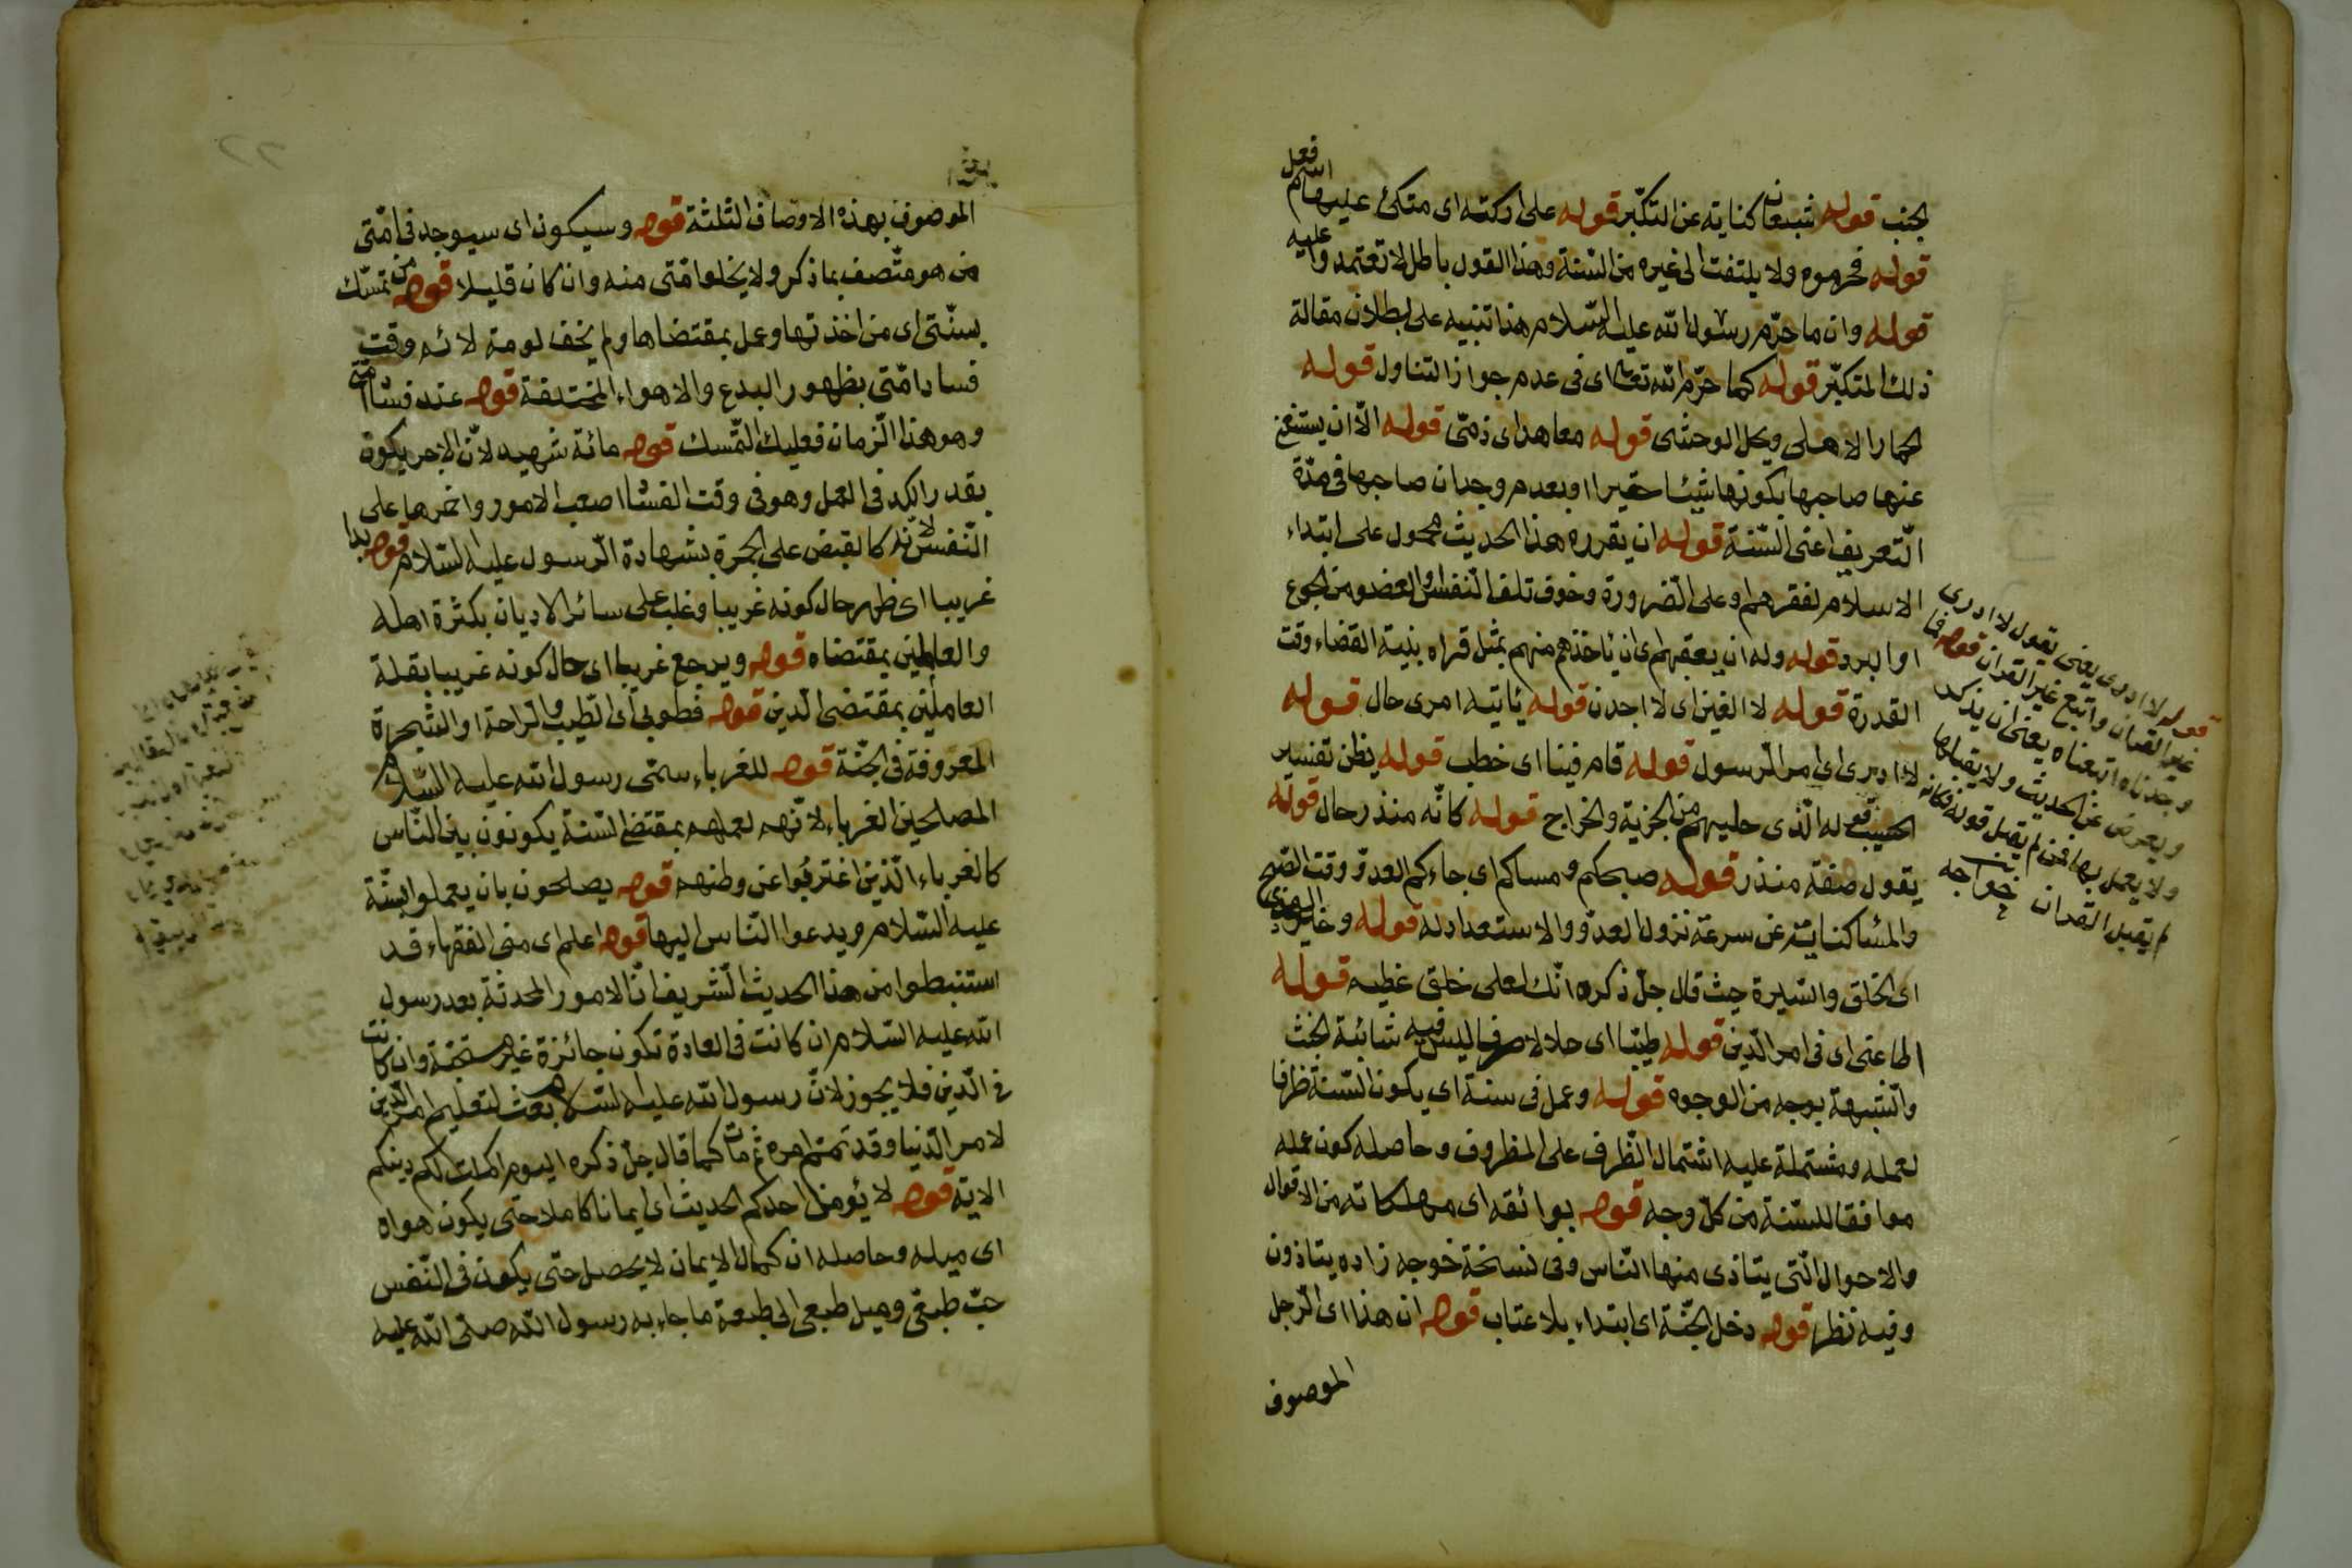 لجنب قوله شبعان كناية عن التكبّر قوله على اركته اى متكئ عليها اسم فعل
قوله فحرموه ولا يلتفت الى غيره من السّنة وهذا القول باطل لا تعتمدوا عليه
قوله وان ما حرّم رسول الله عليه السّلام هذا تنبيه على بطلان مقالة
ذلك المتكبّر قوله كما حرّم الله تعالى اى فى عدم جواز التناول قوله
الحمار الاهلى ويحل الوحشى قوله معاهد اى ذمّى قوله الّا ان يستغن
عنها صاحبها بكونها شيئا حقيرا او بعدم وجدان صاحبها فى مدّة
التّعريف اعنى السّنة قوله ان يقروه هذا الحديث محمول على ابتداء
الاسلام لفقرهم او على الضّرورة وخوف تلف النّفس والعضو من الجوع
او البرد قوله وله ان يعقبهم اى ان ياخذهم منهم بمثل قراه بنية القضاء وقت
القدرة قوله لا الفين اى لا اجدن قوله ياتيه امرى حال قوله
لا ادرى اى امر الرّسول قوله قام فينا اى خطب قوله يظن تفسير
الحسب قوله الّذى عليهم من الجزية والخراج قوله كانّه منذر حال قوله
يقول صفة منذر قوله صبحكم ومساكم اى جاءكم العدوّ وقت الصّبح
والمسا كناية عن سرعة نزول العدوّ والاستعداد له قوله وخير الهدى
اى الخلق والسّيرة حيث قال جلّ ذكره انّك لعلى خلق عظيم قوله
اطاعنى اى فى امر الدّين قوله طيّبا اى حلالا صرفا ليس فيه شائبة الخبث
والشّبهة بوجه من الوجوه قوله وعمل فى سنة اى يكون السّنة ظرفا
لعمله ومشتملة عليه اشتمال الظّرف على المظروف وحاصله كون عمله
موافقا للسّنة من كلّ وجه قوله بوائقه اى مهلكاته من الاقوال
والاحوال الّتى يتاذى منها النّاس وفى نسخة خوجه زاده يتاذون
وفيه نظر قوله دخل الجنّة اى ابتداء بلا عتاب قوله ان هذا اى الرّجل
الموصوف
قوله لا ادرى يعنى يقول لا ادرى
غير القران واتبع غير القران قوله فما
وجدناه اتبعناه يعنى ان يذكر
ويعرض عن الحديث ولا يقبلها
ولا يعمل بها فمن لم يقبل قوله فكانه
لم يقبل القران خواجه
الموصوف بهذه الاوصاف الثلثة قوله وسيكون اى سيوجد فى امّتى
من هو متّصف بما ذكر ولا يخلو امّتى منه وان كان قليلا قوله من تمسّك
بسنّتى اى من اخذتها وعمل بمقتضاها ولم يخف لومة لائم وقت
فساد امّتى بظهور البدع والاهواء المختلفة قوله عند فساد امتى
وهو هذا الزّمان فعليك التّمسك قوله مائة شهيد لانّ الاجر يكون
بقدر الكد فى العمل وهو فى وقت الفساد اصعب الامور واضرها على
النّفس لانّه كالقبض على الجمرة بشهادة الرّسول عليه السّلام قوله بدا
غريبا اى ظهر حال كونه غريبا وغلب على سائر الاديان بكثرة اهله
والعاملين بمقتضاه قوله ويرجع غريبا اى حال كونه غريبا بقلة
العاملين بمقتضى الدّين قوله فطوبى اى الطّيب والرّاحة او الشّجرة
المعروفة فى الجنّة قوله للغرباء سمّى رسول الله عليه السّلام
المصلحين الغرباء لانّهم لعملهم بمقتضى السّنة يكونون بين النّاس
كالغرباء الّذين اغتربوا عن وطنهم قوله يصلحون بان يعملوا بسنّة
عليه السّلام ويدعوا النّاس اليها قوله اعلم اى منى الفقهاء قد
استنبطوا من هذا الحديث الشّريف انّ الامور المحدثة بعد رسول
الله عليه السّلام ان كانت فى العادة تكون جائزة غير مستحقة وان كانت
فى الدّين فلا يجوز لانّ رسول الله عليه السّلام بعث لتعليم امر الدّين
لا مر الدّنيا وقد تمّم امره ثم مات كما قال جلّ ذكره اليوم اكملت لكم دينكم
الاية قوله لا يؤمن احدكم الحديث اى ايمانا كاملا حتى يكون هواه
اى ميله وحاصله ان كمال الايمان لا يحصل حتّى يكون فى النّفس
حبّ طبعى وميل طبعى الى طبعة ما جاء به رسول الله صلى الله عليه